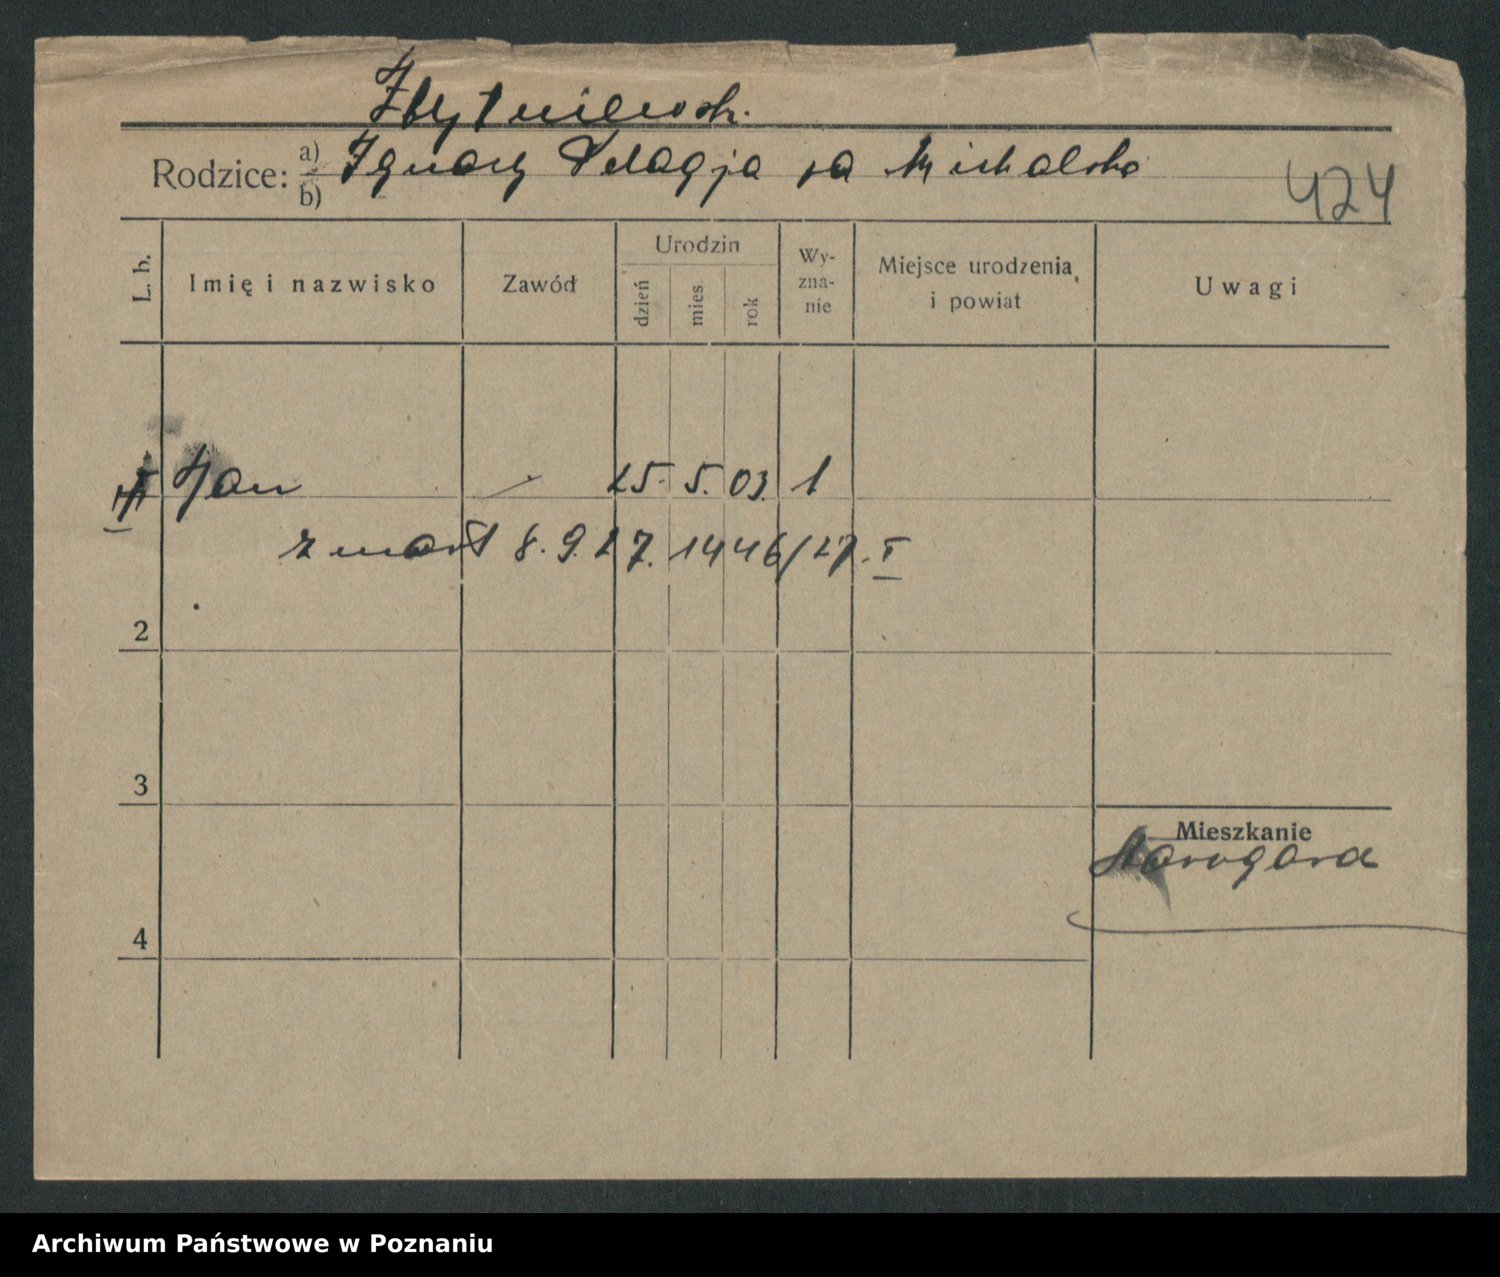 Zbytniewski.
Rodzice: a) Ignacy Pelagja za Michalska
b)
424
L. b.
Imię i nazwisko
Zawód
Urodzin
dzień
mies.
rok
Wy-
zna-
nie
Miejsce urodzenia
i powiat
Uwagi
Jan 25. 5. 03. 1
zmarł 8. 9. 27. 1446/27. I
2
3
Mieszkanie
Starogard
4
Archiwum Państwowe w Poznaniu